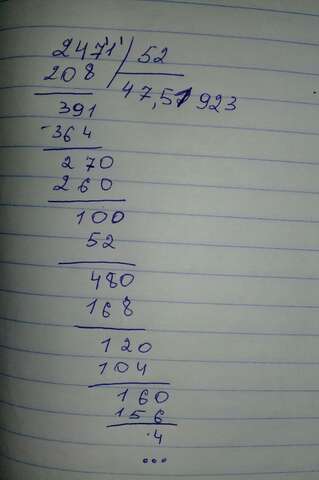 2471 52
208 47,51923
391
-364
270
260
100
52
480
168
120
104
160
156
4
...